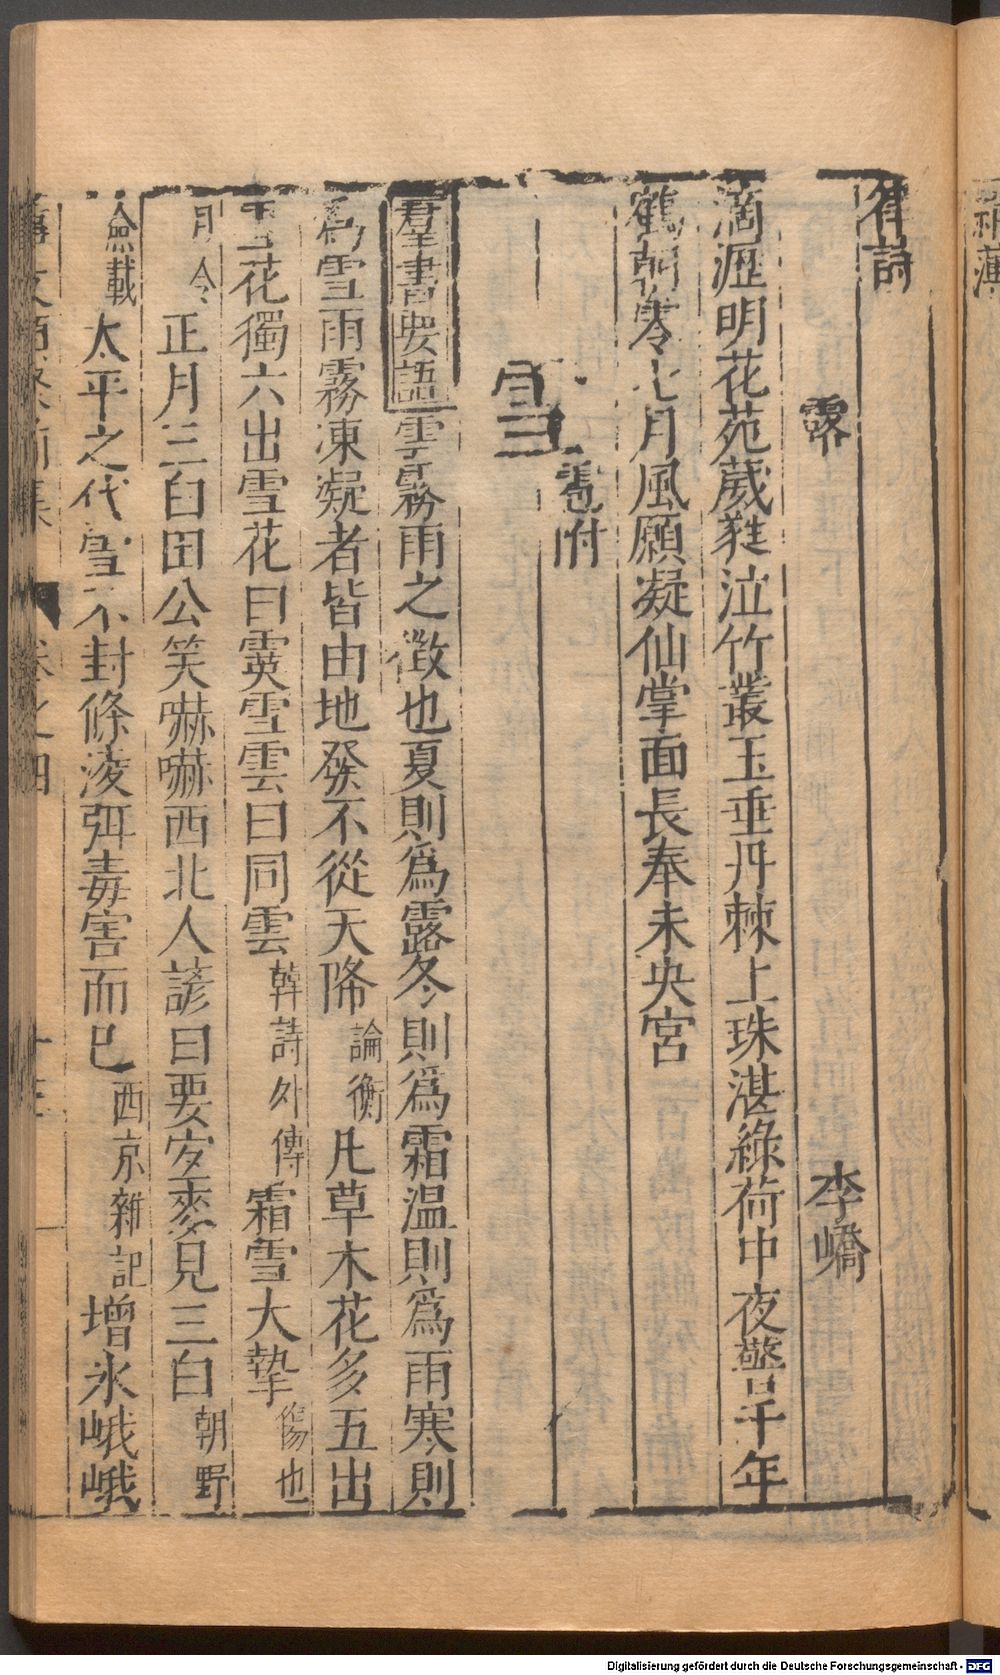 律詩
露　李嶠
滴瀝明花苑葳蕤泣竹叢玉垂丹棘上珠湛綠荷中夜警千年
鶴朝零七月風願凝仙掌面長奉未央宮
雪 雹附
羣書要語雲霧雨之徵也夏則爲露冬則爲霜温則爲雨寒則
爲雪雨霧凍凝者皆由地發不從天降論衡凡草木花多五出
雪花獨六出雪花曰霙雪雲曰同雲韓詩外傳霜雪大摯傷也
月令正月三白田公笑嚇嚇西北人諺曰要安麥見三白朝野
僉載太平之代雪不封條淩弭毒害而已西京雜記增氷峨峨
事文類聚前集 卷之四 十三
Digitalisierung gefördert durch die Deutsche Forschungsgemeinschaft - DFG